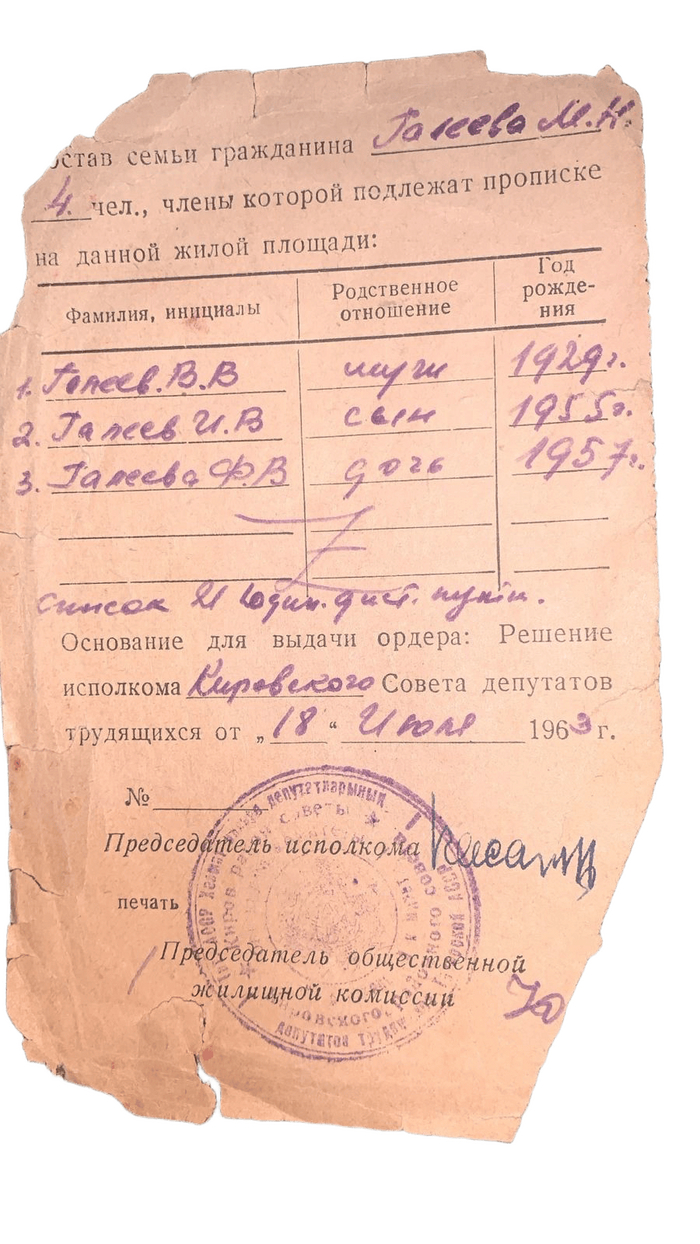 остав семьи гражданина Галеева М.Н.
4. чел., члены которой подлежат прописке
на данной жилой площади:
Фамилия, инициалы Родственное отношение Год рожде-ния
1. Галеев. В. В муж 1929г.
2. Галеев И. В сын 1955г.
3. Галеева Ф. В дочь 1957г.
список
Основание для выдачи ордера: Решение
исполкома Кировского Совета депутатов
трудящихся от „18“ Июля 1963 г.
№
Председатель исполкома
печать
Председатель общественной
жилищной комиссии